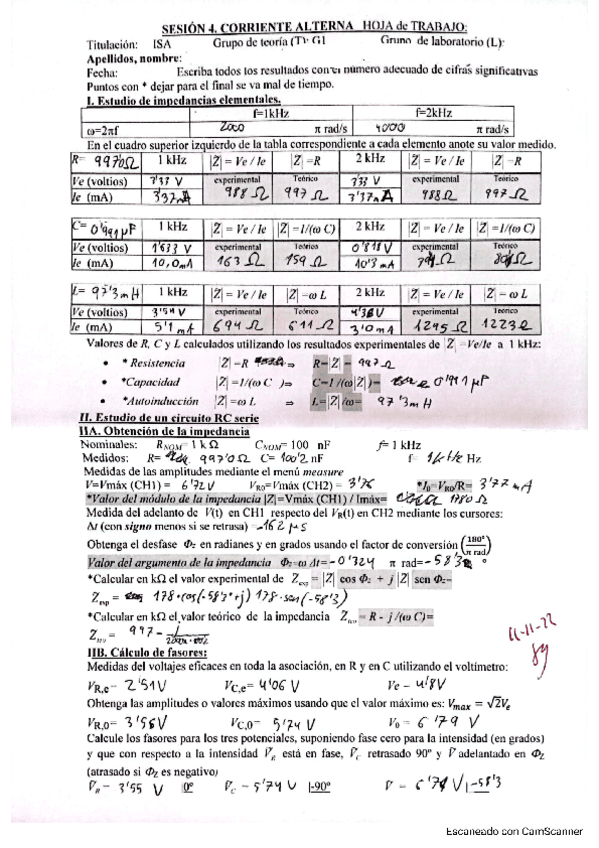 SESIÓN 4. CORRIENTE ALTERNA HOJA de TRABAJO:
Titulación: ISA Grupo de teoría (T): G1 Grupo de laboratorio (L):
Apellidos, nombre:
Fecha: Escriba todos los resultados con el número adecuado de cifras significativas
Puntos con * dejar para el final se va mal de tiempo.
I. Estudio de impedancias elementales.
f=1kHz f=2kHz
ω=2πf 2000 π rad/s 4000 π rad/s
En el cuadro superior izquierdo de la tabla correspondiente a cada elemento anote su valor medido.
R= 997'0Ω 1 kHz |Z| = Ve / Ie |Z| =R 2 kHz |Z| = Ve / Ie |Z| =R
Ve (voltios) 3'33 V experimental Teórico 3'33 V experimental Teórico
Ie (mA) 3'37mA 988 Ω 997 Ω 3'37mA 988Ω 997 Ω
C= 0'991 μF 1 kHz |Z| = Ve / Ie |Z| =1/(ω C) 2 kHz |Z| = Ve / Ie |Z| =1/(ω C)
Ve (voltios) 1'633 V experimental Teórico 0'818 V experimental Teórico
Ie (mA) 10,0mA 163 Ω 159 Ω 10'3mA Ω Ω
L= 97'3mH 1 kHz |Z| = Ve / Ie |Z| = ω L 2 kHz |Z| = Ve / Ie |Z| = ω L
Ve (voltios) 3'54 V experimental Teórico V experimental Teórico
Ie (mA) 5'1 mA 694 Ω 611 Ω 3'0mA 1295 Ω 1223Ω
Valores de R, C y L calculados utilizando los resultados experimentales de |Z| =Ve/Ie a 1 kHz:
• * Resistencia |Z| =R ⇒ R=|Z| = 997Ω
• *Capacidad |Z| =1/(ω C )⇒ C=1 /(ω|Z|)= 0'991 μF
• *Autoinducción |Z| =ω L ⇒ L=|Z| /ω= 97'3mH
II. Estudio de un circuito RC serie
IIA. Obtención de la impedancia
Nominales: R_NOM= 1 k Ω C_NOM= 100 nF f= 1 kHz
Medidos: R= 997'0Ω C= 100'2 nF f= 1kHz Hz
Medidas de las amplitudes mediante el menú measure
V=Vmáx (CH1) = 6'72V V_R0=Vmáx (CH2) = 3'76 *I₀=V_R0/R= 3'77mA
*Valor del módulo de la impedancia |Z|=Vmáx (CH1) / Imáx= 1780 Ω
Medida del adelanto de V(t) en CH1 respecto del V_R(t) en CH2 mediante los cursores:
Δt (con signo menos si se retrasa) =-162 μs
Obtenga el desfase Φz en radianes y en grados usando el factor de conversión (180°/π rad)
Valor del argumento de la impedancia Φz=ω Δt= -0'324 π rad= -58'3 °
*Calcular en kΩ el valor experimental de Z_exp = |Z| cos Φz + j |Z| sen Φz=
Z_exp = 178·cos(-58'3°+j) 178·sen(-58'3)
*Calcular en kΩ el valor teórico de la impedancia = R - j /(ω C)=
= 997 -
11-11-22
IIB. Cálculo de fasores:
Medidas del voltajes eficaces en toda la asociación, en R y en C utilizando el voltímetro:
V_R,e= 2'51V V_C,e= 4'06 V Ve = 4'8V
Obtenga las amplitudes o valores máximos usando que el valor máximo es: V_max = √2V_e
V_R,0= 3'56V V_C,0= 5'74 V V₀ = 6'79 V
Calcule los fasores para los tres potenciales, suponiendo fase cero para la intensidad (en grados)
y que con respecto a la intensidad V_R está en fase, V_C retrasado 90° y V adelantado en Φz
(atrasado si Φz es negativo)
V_R = 3'55 V |0° V_C = 5'74 V |-90° V = V |-58'3
Escaneado con CamScanner